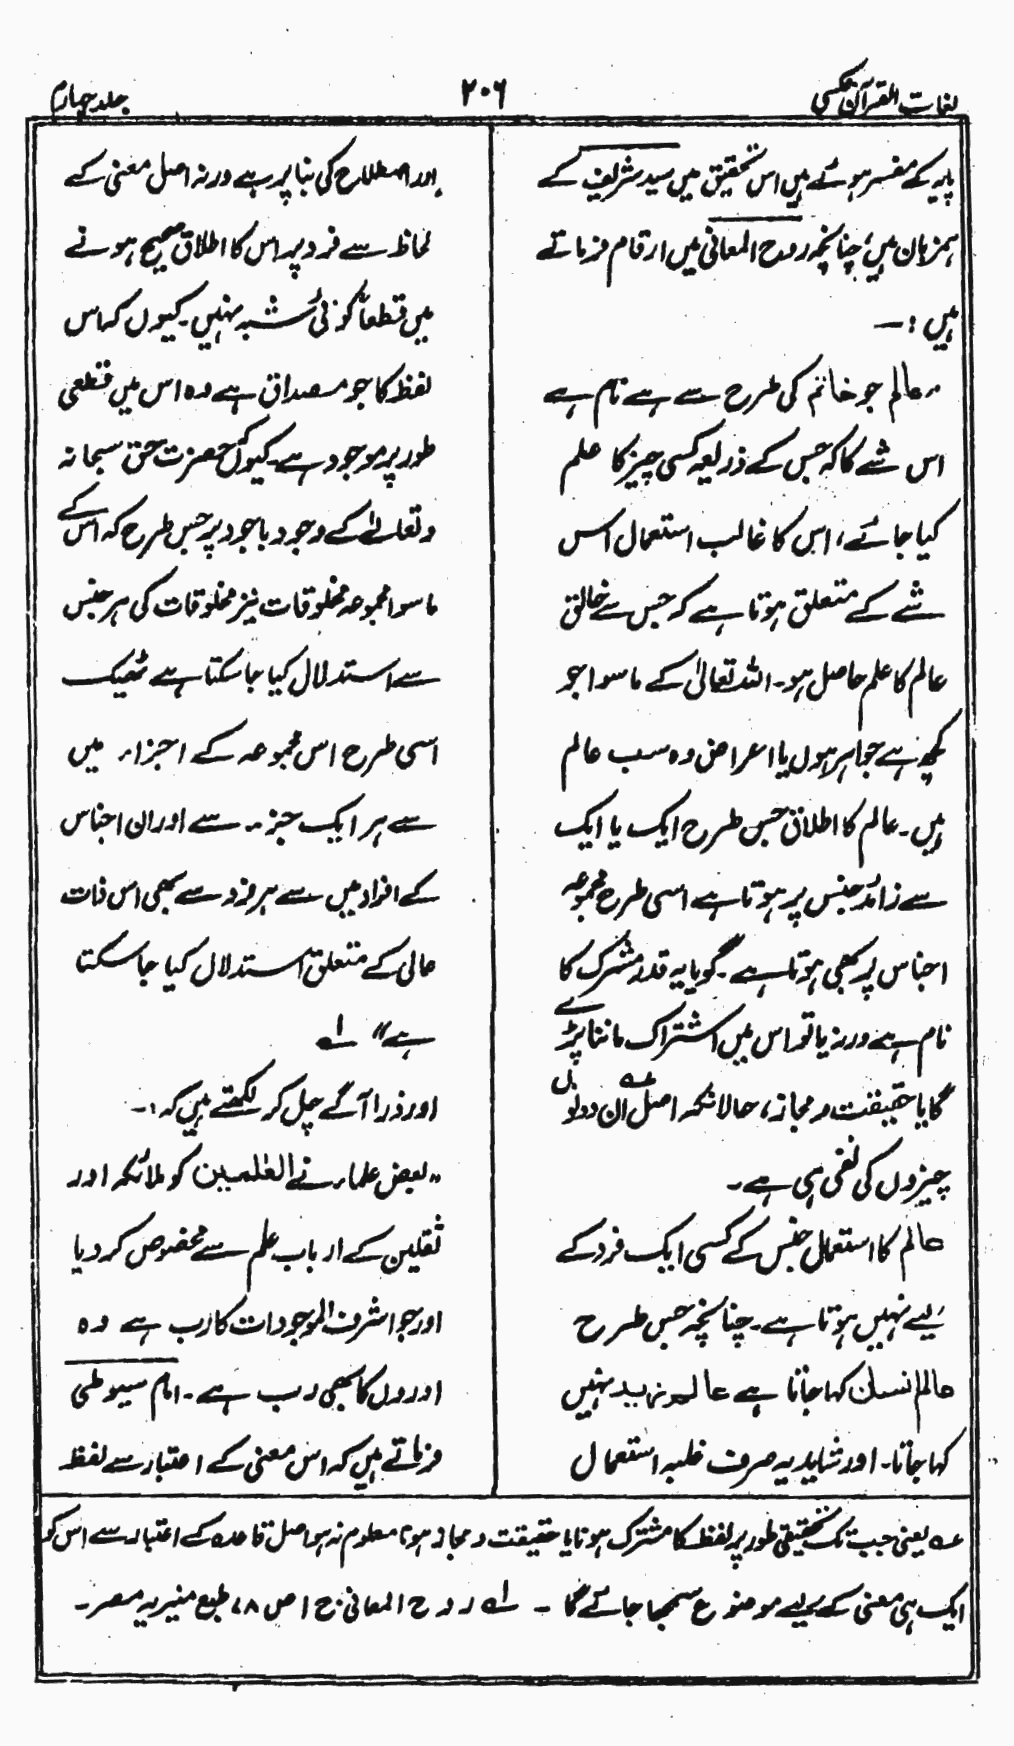 لغات القرآن عکسی
۲۰۶
جلد چہارم
پایہ کے مفسر ہوئے ہیں اس تحقیق میں سید شریف کے
ہمزبان ہیں، چنانچہ روح المعانی میں ارقام فرماتے
ہیں :—
"عالم جو خاتم کی طرح سے ہے نام ہے
اس شے کا کہ جس کے ذریعہ کسی چیز کا علم
کیا جائے، اس کا غالب استعمال اس
شے کے متعلق ہوتا ہے کہ جس سے خالق
عالم کا علم حاصل ہو۔ اللہ تعالیٰ کے ماسوا جو
کچھ ہے جواہر ہوں یا اعراض وہ سب عالم
ہیں۔ عالم کا اطلاق جس طرح ایک یا ایک
سے زائد جنس پر ہوتا ہے اسی طرح مجموعہ
اجناس پر بھی ہوتا ہے۔ گویا یہ قدر مشترک کا
نام ہے ورنہ یا تو اس میں اشتراک ماننا پڑے
گا یا حقیقت و مجاز، حالانکہ اصل عہ ان دونوں
چیزوں کی نفی ہی ہے۔
عالم کا استعمال جنس کے کسی ایک فرد کے
لیے نہیں ہوتا ہے۔ چنانچہ جس طرح
عالم انسان کہا جاتا ہے عالم زید نہیں
کہا جاتا۔ اور شاید یہ صرف غلبہ استعمال
اور اصطلاح کی بنا پر ہے ورنہ اصل معنی کے
لحاظ سے فرد پر اس کا اطلاق صحیح ہونے
میں قطعاً کوئی شبہ نہیں۔ کیوں کہ اس
لفظ کا جو مصداق ہے وہ اس میں قطعی
طور پر موجود ہے۔ کیوں کہ حضرت حق سبحانہ
وتعالےٰ کے وجود باجود پر جس طرح کہ اس کے
ماسوا مجموعہ مخلوقات نیز مخلوقات کی ہر جنس
سے استدلال کیا جا سکتا ہے ٹھیک
اسی طرح اس مجموعہ کے اجزاء میں
سے ہر ایک جز۔۔ سے اور ان اجناس
کے افراد میں سے ہر فرد سے بھی اس ذات
عالی کے متعلق استدلال کیا جا سکتا
ہے" لہ
اور ذرا آگے چل کر لکھتے ہیں کہ :۔
"بعض علماء نے العٰلمین کو ملائکہ اور
ثقلین کے ارباب علم سے مخصوص کر دیا
اور جو اشرف الموجودات کا رب ہے وہ
اوروں کا بھی رب ہے۔ امام سیوطی
فرماتے ہیں کہ اس معنی کے اعتبار سے لفظ
عہ یعنی جب تک تحقیقی طور پر لفظ کا مشترک ہونا یا حقیقت و مجاز ہونا معلوم نہ ہو اصل قاعدہ کے اعتبار سے اس کو
ایک ہی معنی کے لیے موضوع سمجھا جائے گا ۔ لہ روح المعانی ج ۱ ص ۷۸، طبع منیریہ مصر۔